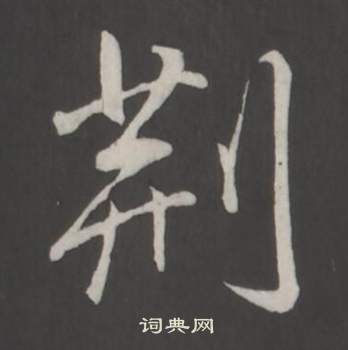 荆
词典网